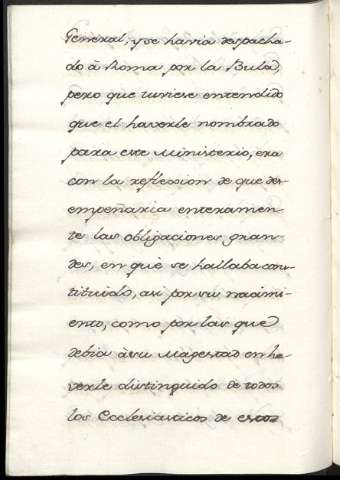 General, y se havia despacha-
do à Roma por la Bula,
pero que tuviese entendido
que el haverle nombrado
para este Ministerio, era
con la reflession de que des-
empeñaria enteramen-
te las obligaciones gran-
des, en què se hallaba cons-
tituido, asi por su nacimi-
ento, como por las que
debia à su Magestad en ha-
verle distinguido de todos
los Ecclesiasticos de estos